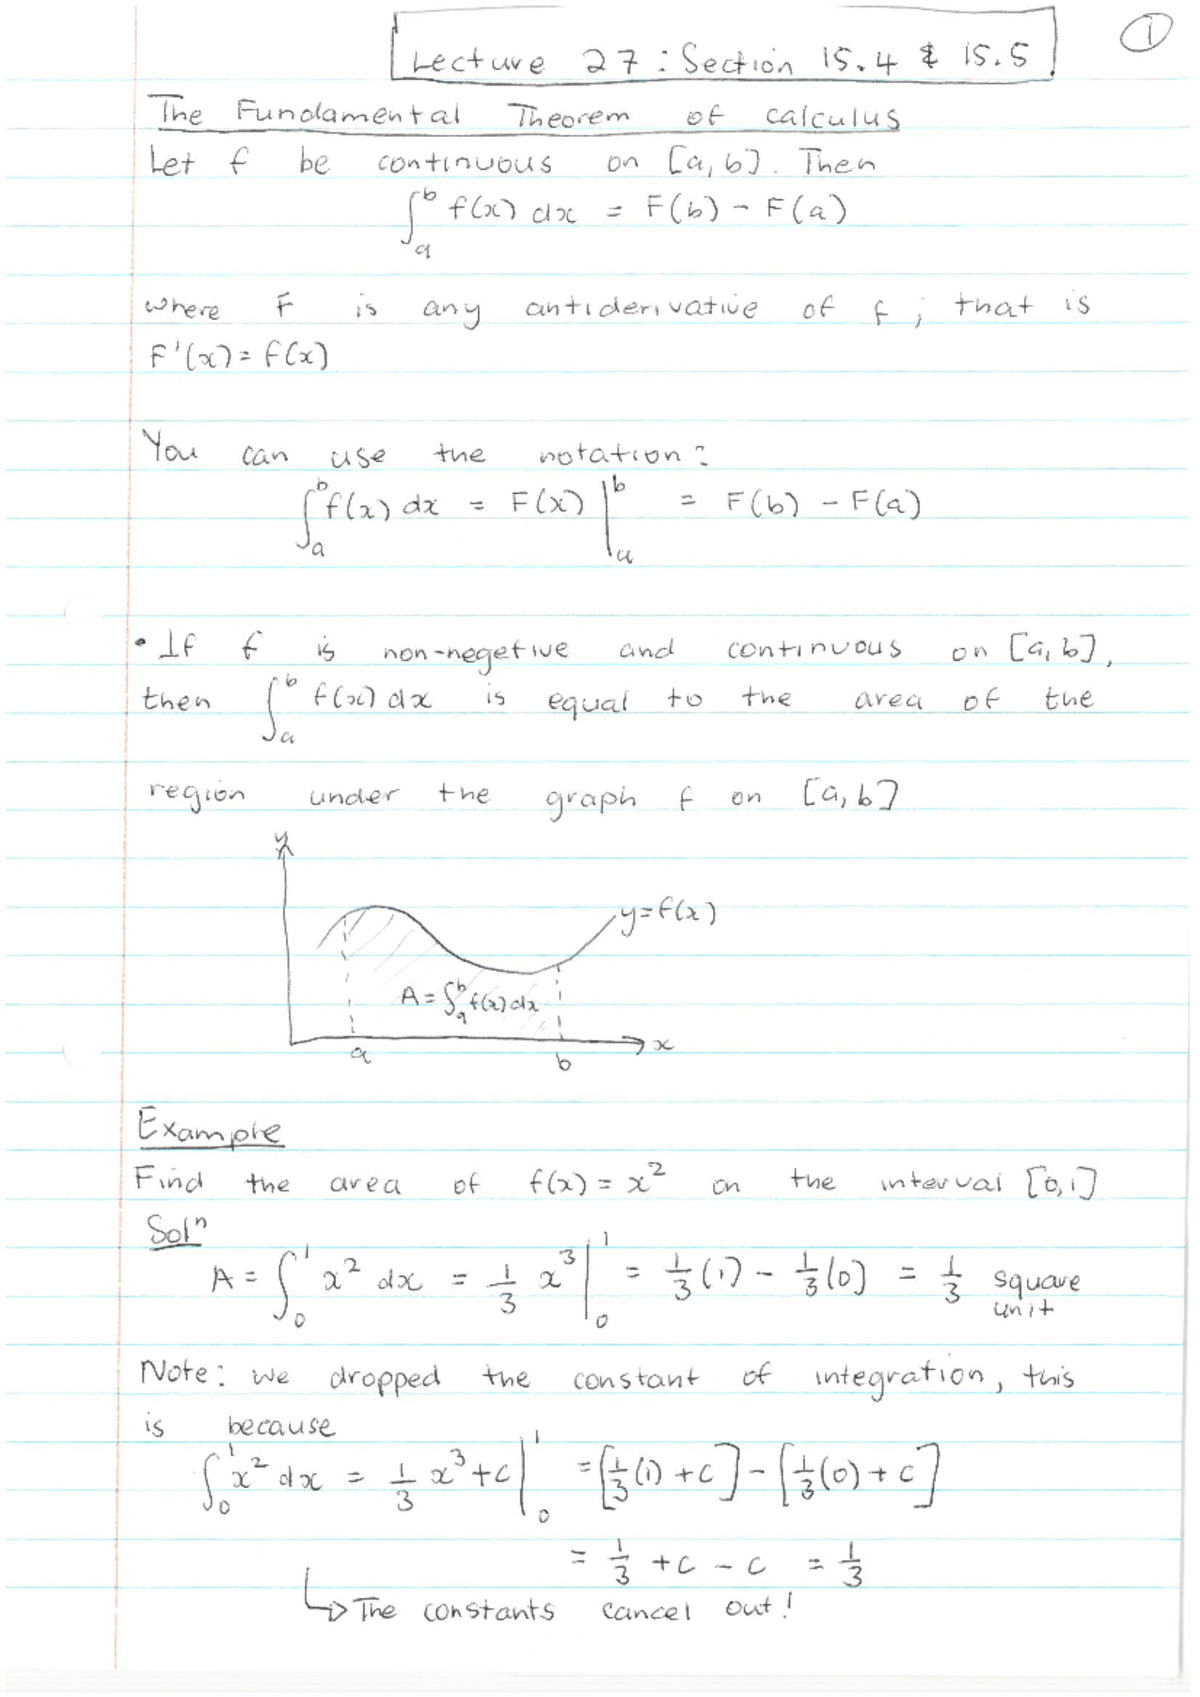 ①
Lecture 27 : Section 15.4 & 15.5
The Fundamental Theorem of calculus
Let f be continuous on [a, b]. Then
∫_a^b f(x) dx = F(b) - F(a)
where F is any antiderivative of f ; that is
F'(x) = f(x)
You can use the notation:
∫_a^b f(x) dx = F(x) |_a^b = F(b) - F(a)
• If f is non-negetive and continuous on [a, b],
then ∫_a^b f(x) dx is equal to the area of the
region under the graph f on [a, b]
y
y = f(x)
A = ∫_a^b f(x) dx
x
a b
Example
Find the area of f(x) = x² on the interval [0,1]
Solⁿ
A = ∫_0^1 x² dx = 1/3 x³ |_0^1 = 1/3 (1) - 1/3 (0) = 1/3 square
unit
Note: we dropped the constant of integration, this
is because
∫_0^1 x² dx = 1/3 x³ + c |_0^1 = [1/3 (1) + c] - [1/3 (0) + c]
= 1/3 + c - c = 1/3
↳ The constants cancel out!